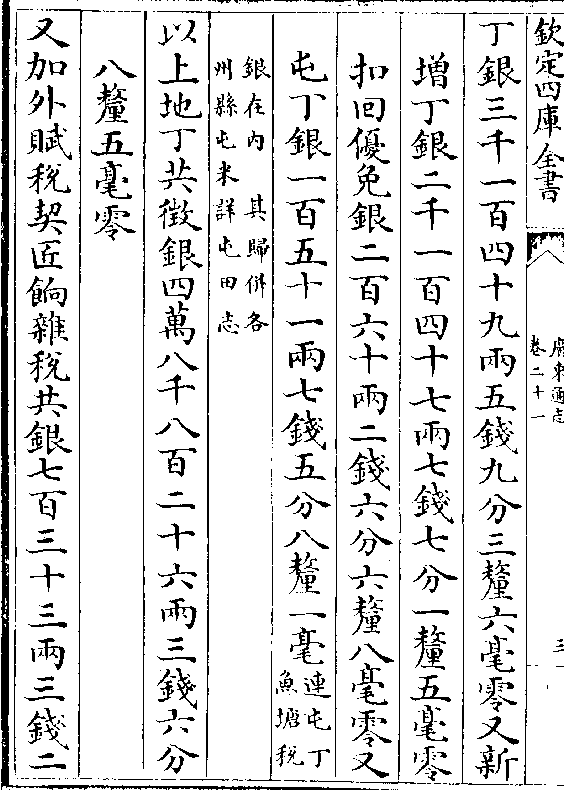 欽定四庫全書
廣東通志
卷二十一
三
丁銀三千一百四十九兩五錢九分三釐六毫零又新
增丁銀二千一百四十七兩七錢七分一釐五毫零
扣回優免銀二百六十兩二錢六分六釐八毫零又
屯丁銀一百五十一兩七錢五分八釐一毫連屯丁
魚塘稅
銀在內 其歸併各
州縣屯米詳屯田志
以上地丁共徵銀四萬八千八百二十六兩三錢六分
八釐五毫零
又加外賦稅契匠餉雜稅共銀七百三十三兩三錢二